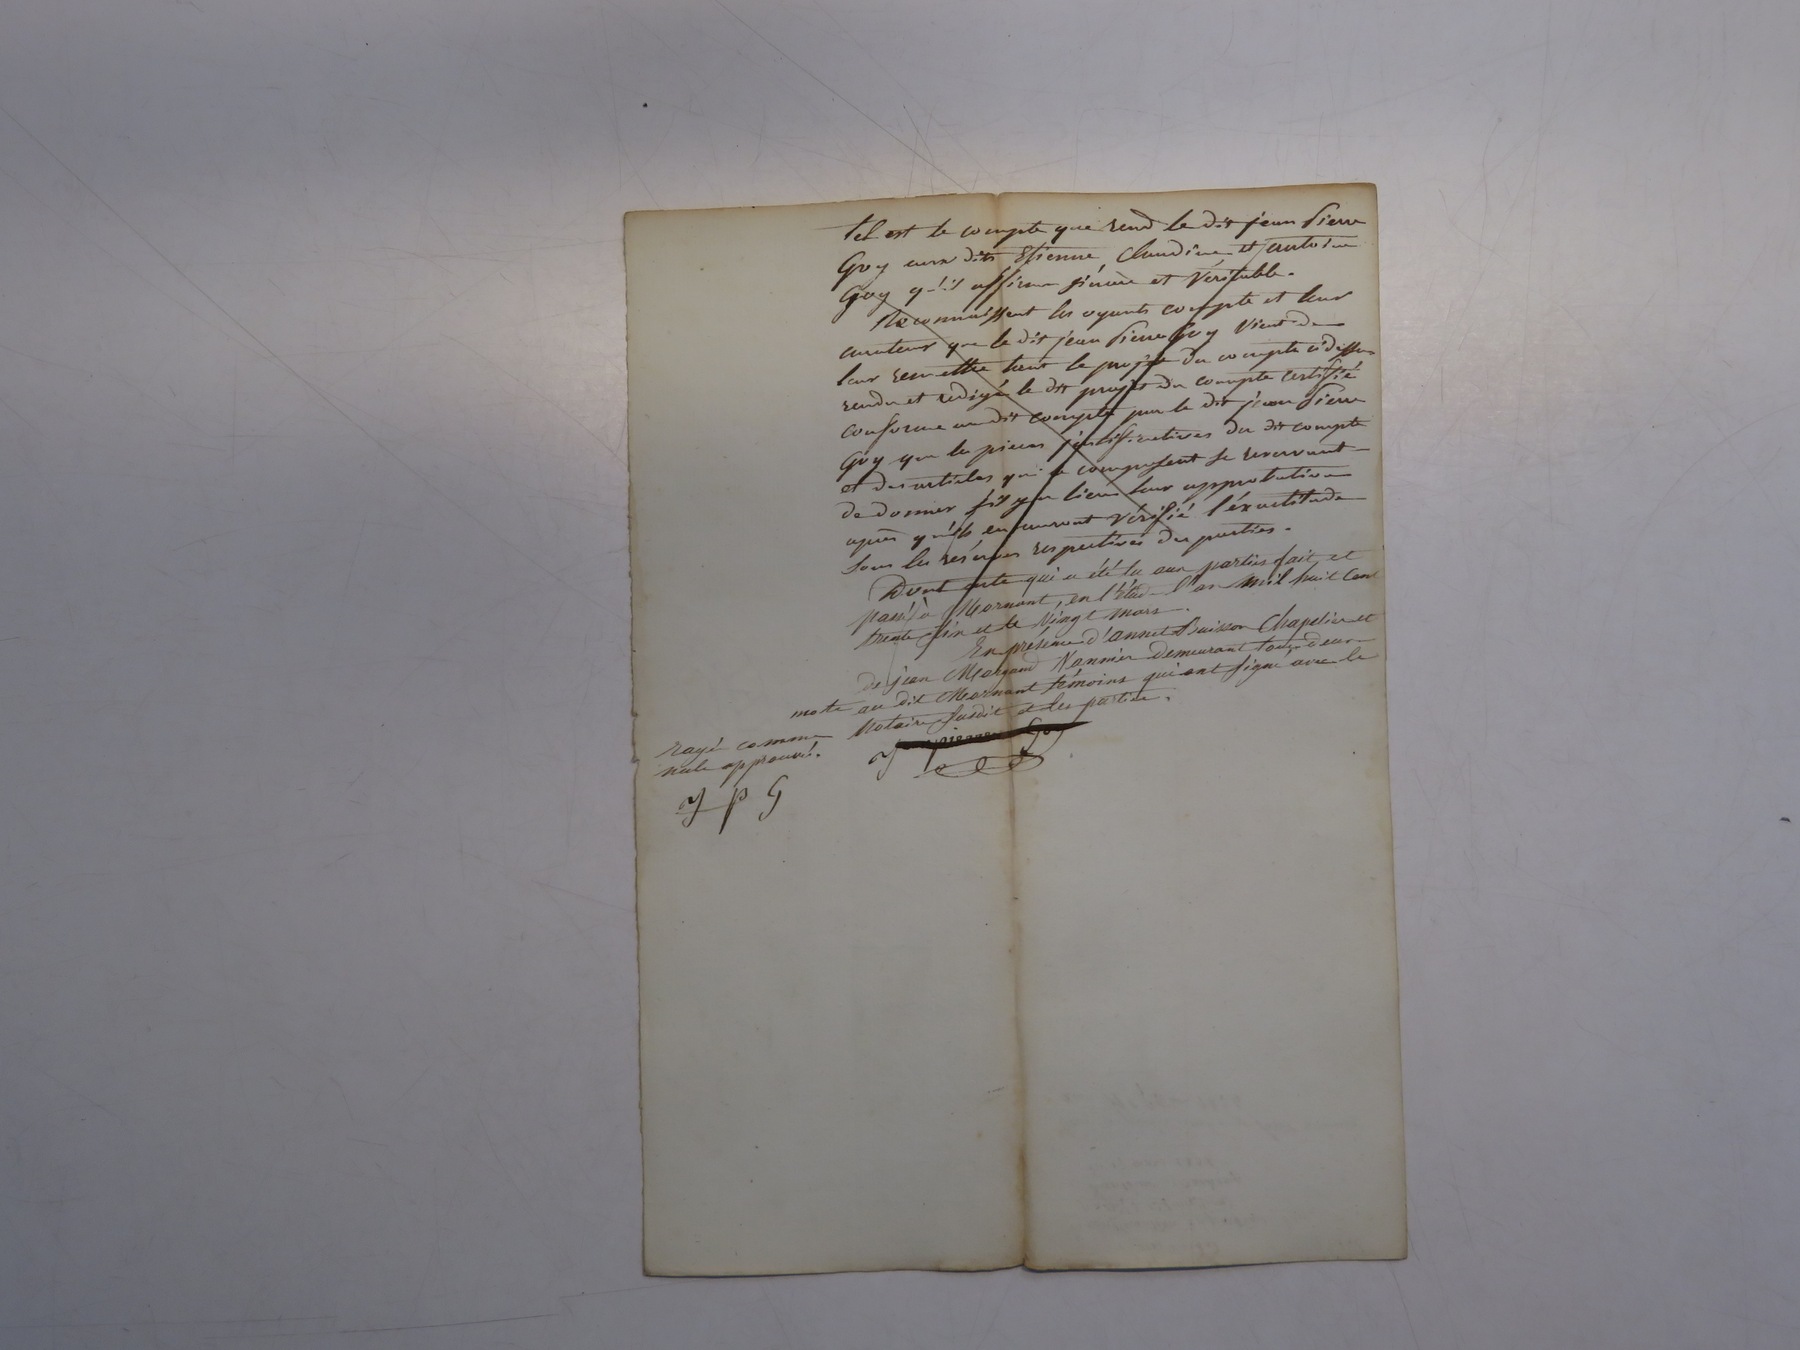 tel est le compte que rend le dit jean Pierre
Goy aux dits Etienne, Claudine et antoine
Goy qu'il affirme sincère et Véritable.
Reconnaissent les oyants compte et leur
curateur que le dit jean Pierre Goy Vient de
leur remettre tant le projet du compte cidessus
rendu et redigé le dit projet du compte certifié
conforme au dit compte par le dit jean Pierre
Goy que les pieces justificatives du dit compte
et des articles qui le composent se reservant
de donner s'il y a lieu leur approbation
après qu'ils en auront vérifié l'éxactitude
sous les réserves respectives des parties.
Dont acte qui a été lu aux parties fait et
passé à Mornant, en l'Etude l'an mil huit Cent
trente six et le Vingt mars.
En présence d'annet Buisson Chapelier et
de jean Margand Vannier demeurant tous deux
au dit Mornant témoins qui ont signé avec le
Notaire susdit et les parties.
rayé comme
nule approuvé.
J P G